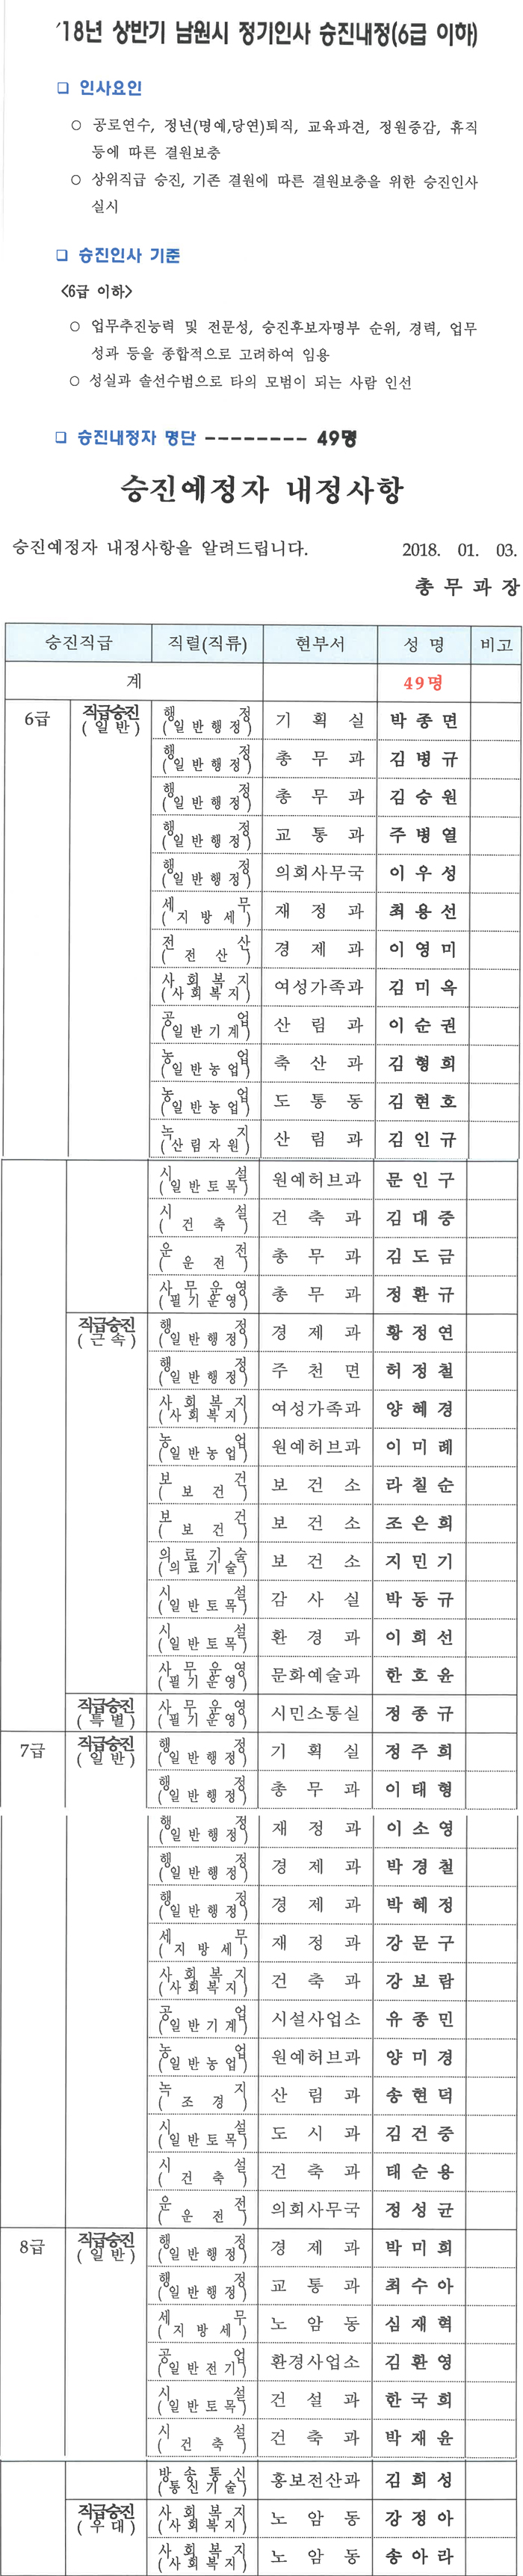 '18년 상반기 남원시 정기인사 승진내정(6급 이하)
❑ 인사요인
○ 공로연수, 정년(명예,당연)퇴직, 교육파견, 정원증감, 휴직
등에 따른 결원보충
○ 상위직급 승진, 기존 결원에 따른 결원보충을 위한 승진인사
실시
❑ 승진인사 기준
<6급 이하>
○ 업무추진능력 및 전문성, 승진후보자명부 순위, 경력, 업무
성과 등을 종합적으로 고려하여 임용
○ 성실과 솔선수범으로 타의 모범이 되는 사람 인선
❑ 승진내정자 명단 --------- 49명
승진예정자 내정사항
승진예정자 내정사항을 알려드립니다. 2018. 01. 03.
총 무 과 장
승진직급 직렬(직류) 현부서 성 명 비고
계 49명
6급 직급승진(일반) 행정(일반행정) 기 획 실 박종면
행정(일반행정) 총 무 과 김병규
행정(일반행정) 총 무 과 김승원
행정(일반행정) 교 통 과 주병열
행정(일반행정) 의회사무국 이우성
세무(지방세) 재 정 과 최용선
전산(전산) 경 제 과 이영미
사회복지(사회복지) 여성가족과 김미옥
공업(일반기계) 산 림 과 이순권
농업(일반농업) 축 산 과 김형희
농업(일반농업) 도 통 동 김현호
녹지(산림자원) 산 림 과 김인규
시설(일반토목) 원예허브과 문인구
시설(건축) 건 축 과 김대중
운전(운전) 총 무 과 김도금
사무운영(필기운영) 총 무 과 정환규
직급승진(근속) 행정(일반행정) 경 제 과 황정연
행정(일반행정) 주 천 면 허정철
사회복지(사회복지) 여성가족과 양혜경
농업(일반농업) 원예허브과 이미례
보건(보건) 보 건 소 라칠순
보건(보건) 보 건 소 조은희
의료기술(의료기술) 보 건 소 지민기
시설(일반토목) 감 사 실 박동규
시설(일반토목) 환 경 과 이희선
사무운영(필기운영) 문화예술과 한호윤
직급승진(특별) 사무운영(필기운영) 시민소통실 정종규
7급 직급승진(일반) 행정(일반행정) 기 획 실 정주희
행정(일반행정) 총 무 과 이태형
행정(일반행정) 재 정 과 이소영
행정(일반행정) 경 제 과 박경철
행정(일반행정) 경 제 과 박혜정
세무(지방세) 재 정 과 강문구
사회복지(사회복지) 건 축 과 강보람
공업(일반기계) 시설사업소 유종민
농업(일반농업) 원예허브과 양미경
녹지(조경) 산 림 과 송현덕
시설(일반토목) 도 시 과 김건중
시설(건축) 건 축 과 태순용
운전(운전) 의회사무국 정성균
8급 직급승진(일반) 행정(일반행정) 경 제 과 박미희
행정(일반행정) 교 통 과 최수아
세무(지방세) 노 암 동 심재혁
공업(일반전기) 환경사업소 김환영
시설(일반토목) 건 설 과 한국희
시설(건축) 건 축 과 박재윤
방송통신(통신기술) 홍보전산과 김희성
직급승진(우대) 사회복지(사회복지) 노 암 동 강정아
사회복지(사회복지) 노 암 동 송아라